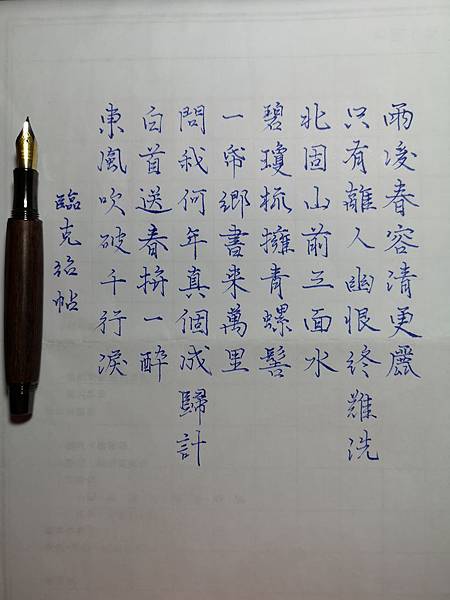 雨後春容清更麗
只有離人幽恨終難洗
北固山前三面水
碧瓊梳擁青螺髻
一帋鄉書来萬里
問我何年真個成歸計
白首送春拚一醉
東風吹破千行淚
臨克紹帖